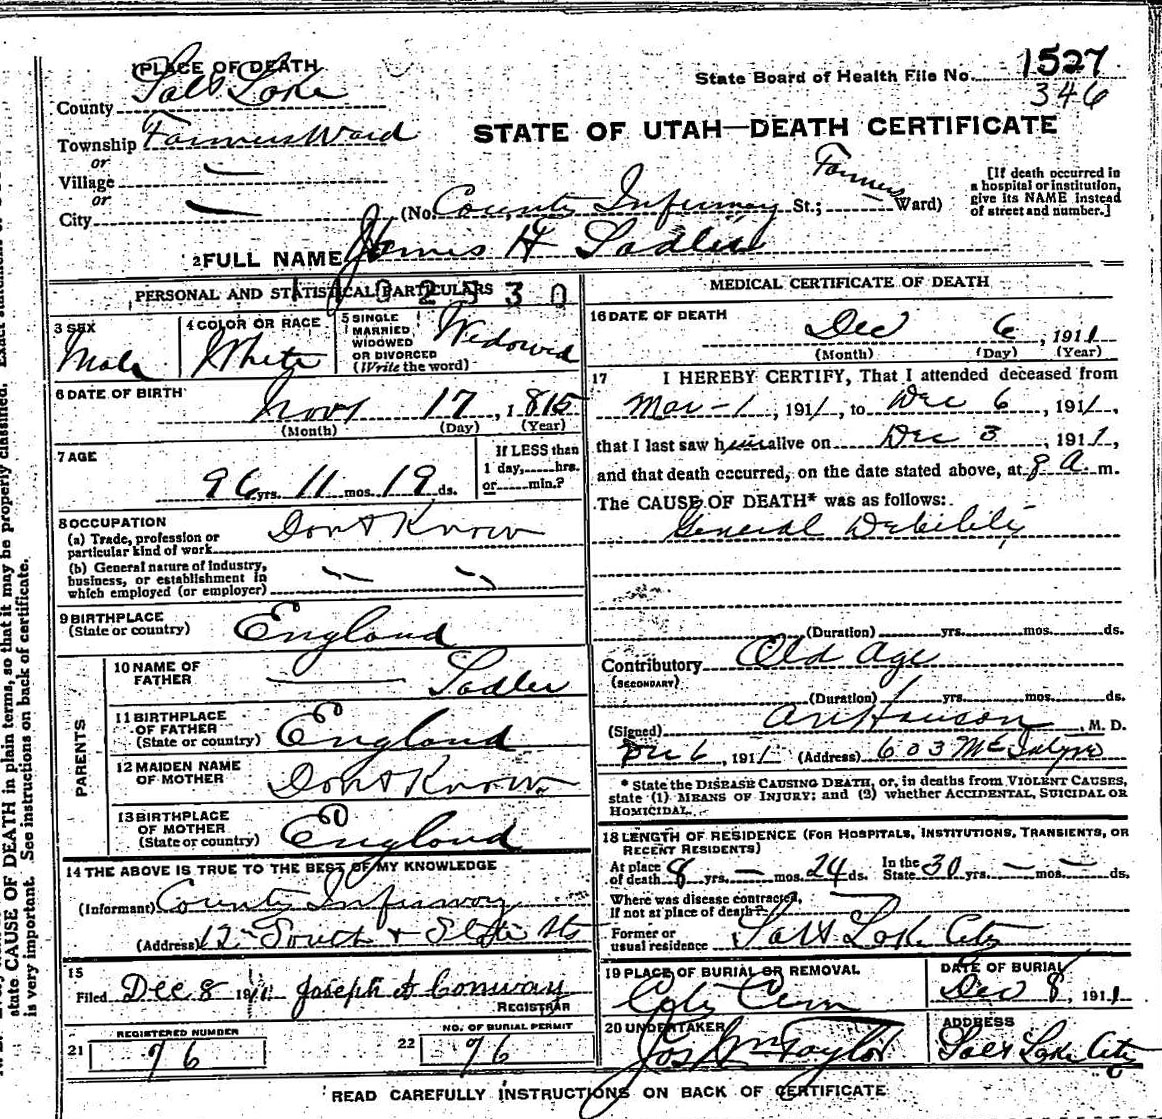 PLACE OF DEATH
State Board of Health File No. 1527
346
County Salt Lake
Township Farmers Ward
STATE OF UTAH—DEATH CERTIFICATE
or
Village
or
City
(No. County Infirmary St.; Farmers Ward)
[If death occurred in
a hospital or institution,
give its NAME instead
of street and number.]
2 FULL NAME James H Sadlier
PERSONAL AND STATISTICAL PARTICULARS
02530
3 SEX
Male
4 COLOR OR RACE
White
5 SINGLE
MARRIED
WIDOWED
OR DIVORCED
(Write the word)
Widowed
6 DATE OF BIRTH
Nov 17, 1815
(Month) (Day) (Year)
7 AGE
96 yrs. 11 mos. 19 ds.
If LESS than
1 day,......hrs.
or......min.?
8 OCCUPATION
(a) Trade, profession or
particular kind of work
Don't Know
(b) General nature of industry,
business, or establishment in
which employed (or employer)
9 BIRTHPLACE
(State or country)
England
PARENTS
10 NAME OF
FATHER
Sadler
11 BIRTHPLACE
OF FATHER
(State or country)
England
12 MAIDEN NAME
OF MOTHER
Don't Know
13 BIRTHPLACE
OF MOTHER
(State or country)
England
14 THE ABOVE IS TRUE TO THE BEST OF MY KNOWLEDGE
(Informant) County Infirmary
(Address) 12th South & State Sts
15
Filed Dec 8 1911 Joseph A Conway
REGISTRAR
REGISTERED NUMBER
21 76
NO. OF BURIAL PERMIT
22 76
MEDICAL CERTIFICATE OF DEATH
16 DATE OF DEATH
Dec 6, 1911
(Month) (Day) (Year)
17 I HEREBY CERTIFY, That I attended deceased from
Mar - 1, 1911, to Dec 6, 1911,
that I last saw him alive on Dec 3, 1911,
and that death occurred, on the date stated above, at 8 A. m.
The CAUSE OF DEATH* was as follows:
General Debility
(Duration) yrs. mos. ds.
Contributory Old Age
(SECONDARY)
(Duration) yrs. mos. ds.
(Signed) Hanson, M. D.
Dec 6, 1911 (Address) 603 McIntyre
* State the DISEASE CAUSING DEATH, or, in deaths from VIOLENT CAUSES,
state (1) MEANS OF INJURY; and (2) whether ACCIDENTAL, SUICIDAL OR
HOMICIDAL.
18 LENGTH OF RESIDENCE (FOR HOSPITALS, INSTITUTIONS, TRANSIENTS, OR
RECENT RESIDENTS)
At place
of death 8 yrs. — mos. 24 ds.
In the
State 30 yrs. — mos. — ds.
Where was disease contracted,
if not at place of death?
Former or
usual residence Salt Lake City
19 PLACE OF BURIAL OR REMOVAL
City Cem
DATE OF BURIAL
Dec 8, 1911
20 UNDERTAKER
Jos Wm Taylor
ADDRESS
Salt Lake City
READ CAREFULLY INSTRUCTIONS ON BACK OF CERTIFICATE
state CAUSE OF DEATH in plain terms, so that it may be properly classified.
is very important. See instructions on back of certificate.